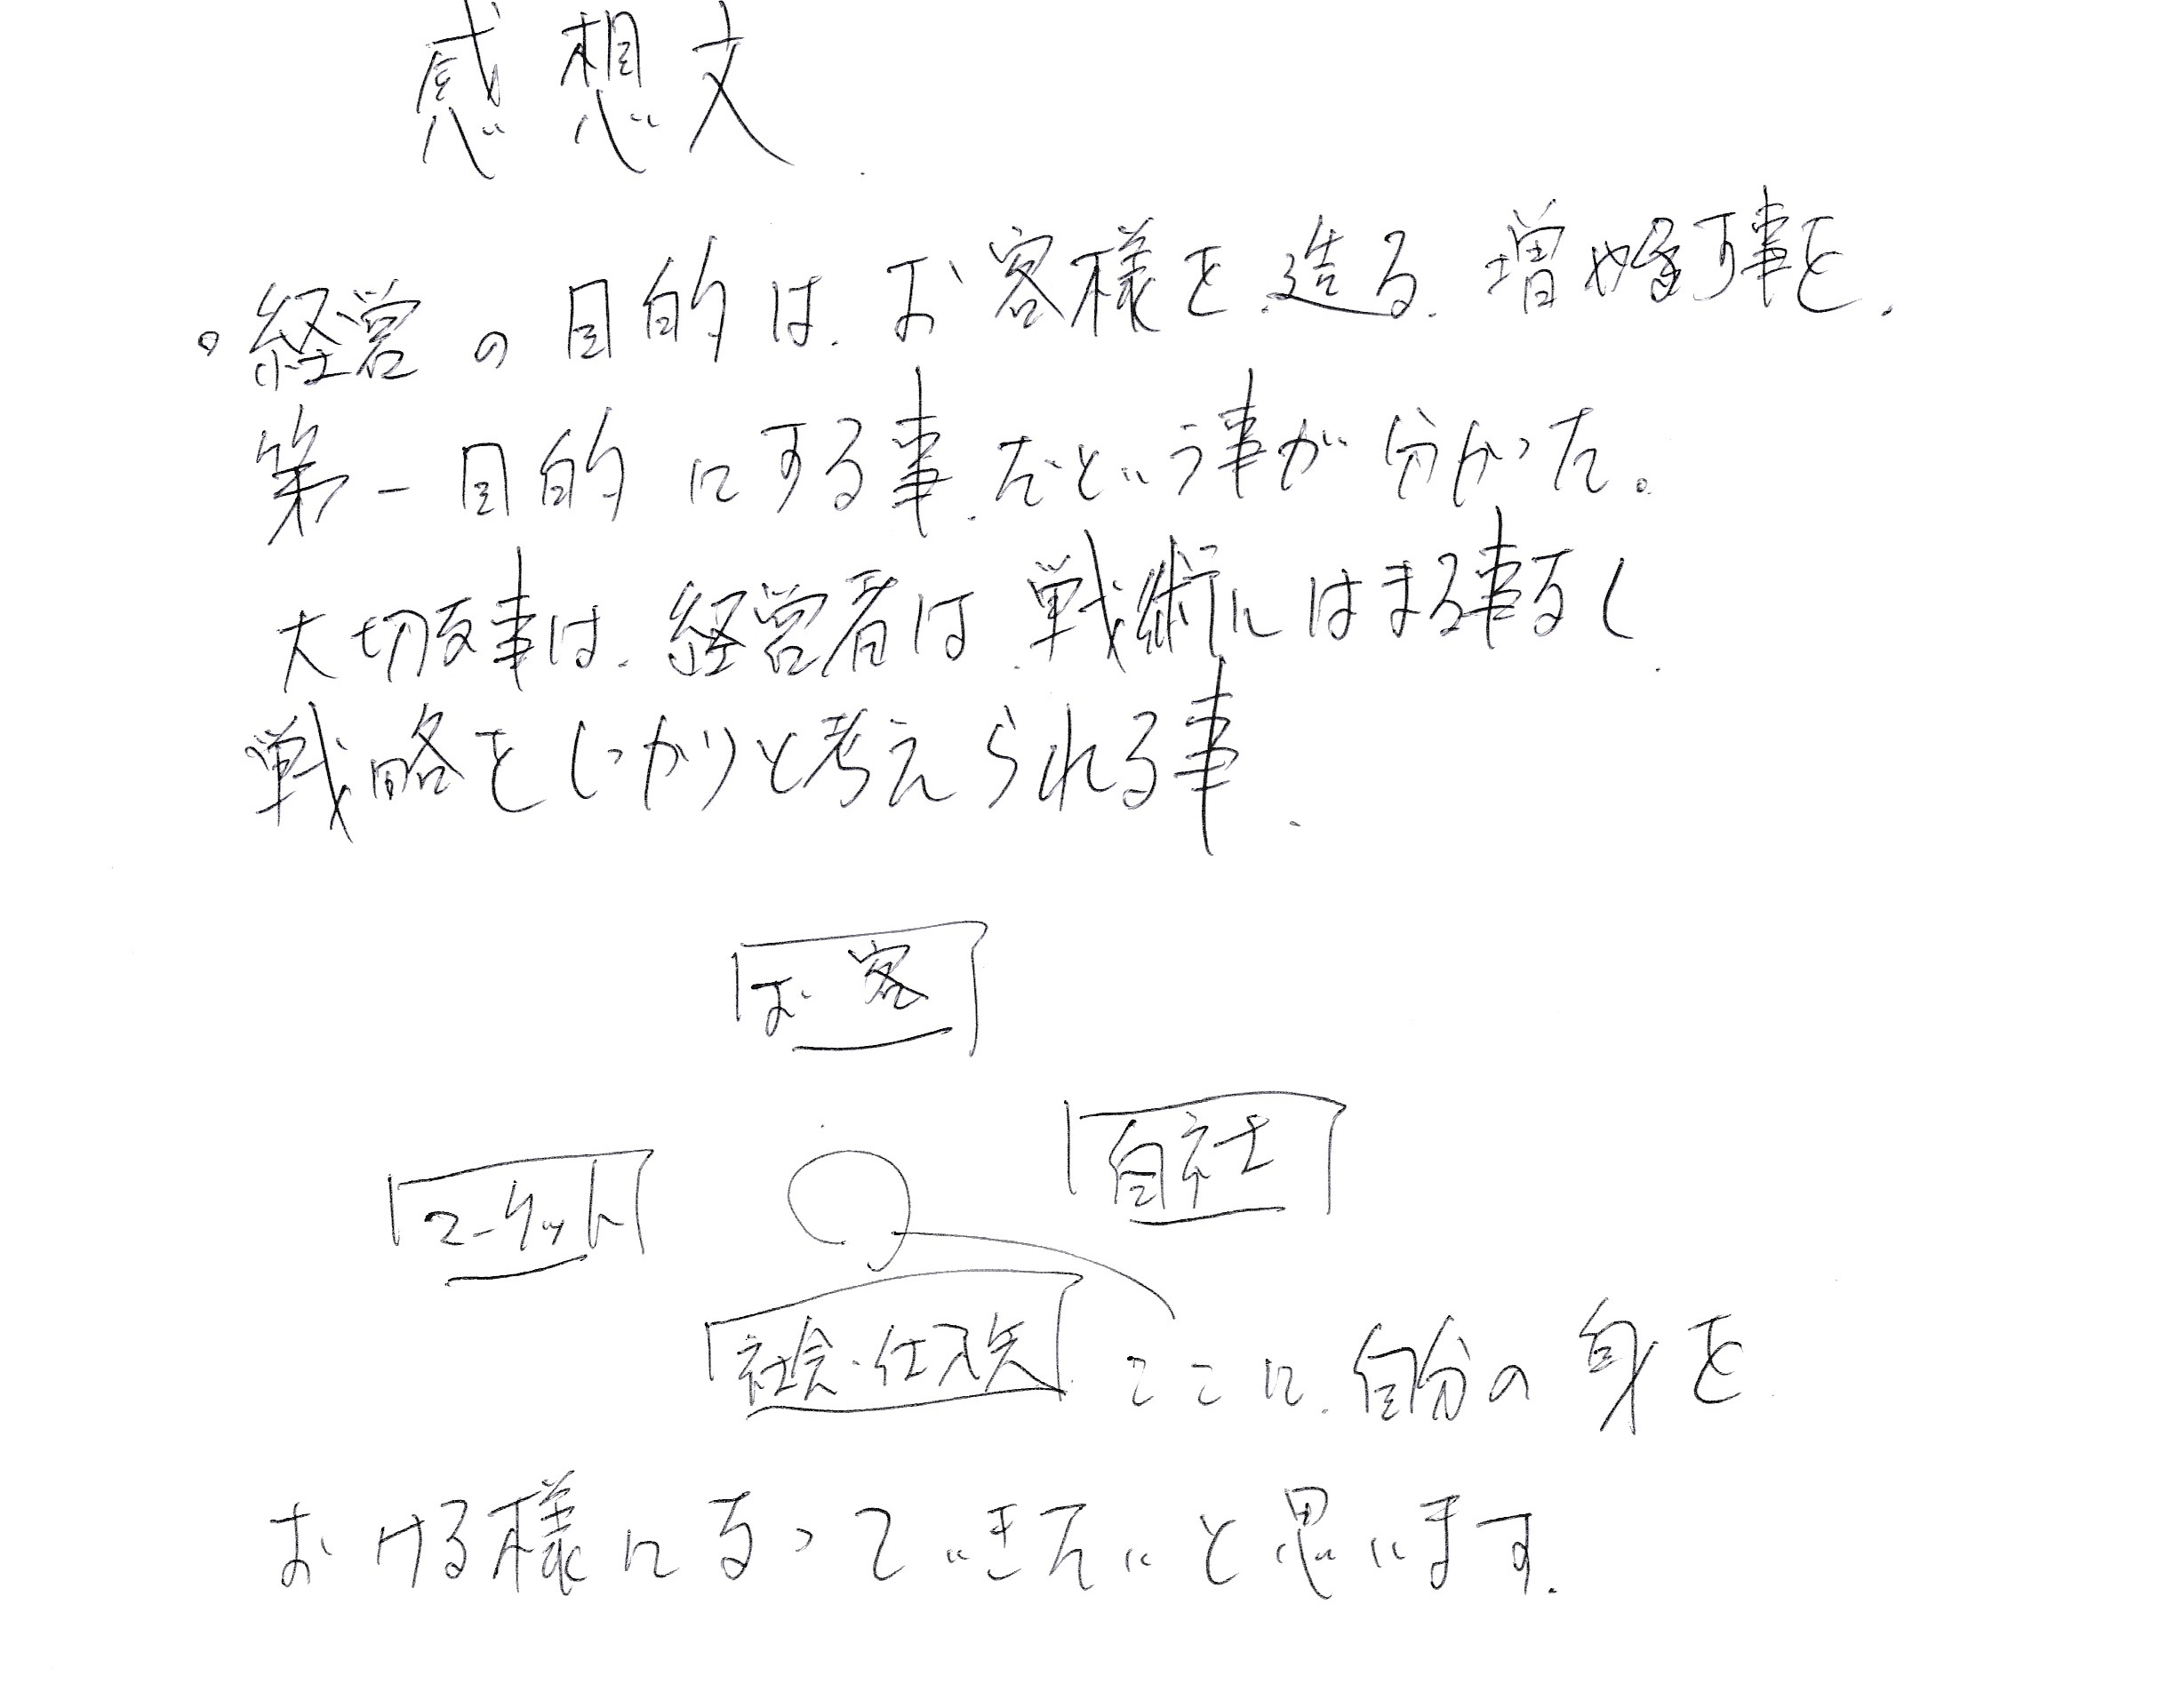 感想文
。経営の目的は、お客様を造る、増やす事を、
第一目的にする事、だという事が分かった。
大切な事は、経営者は、戦術にはまる事なく、
戦略をしっかりと考えられる事、
お客
自社
マーケット
社会・
ここに、自分の身を
おける様になっていきたいと思います。